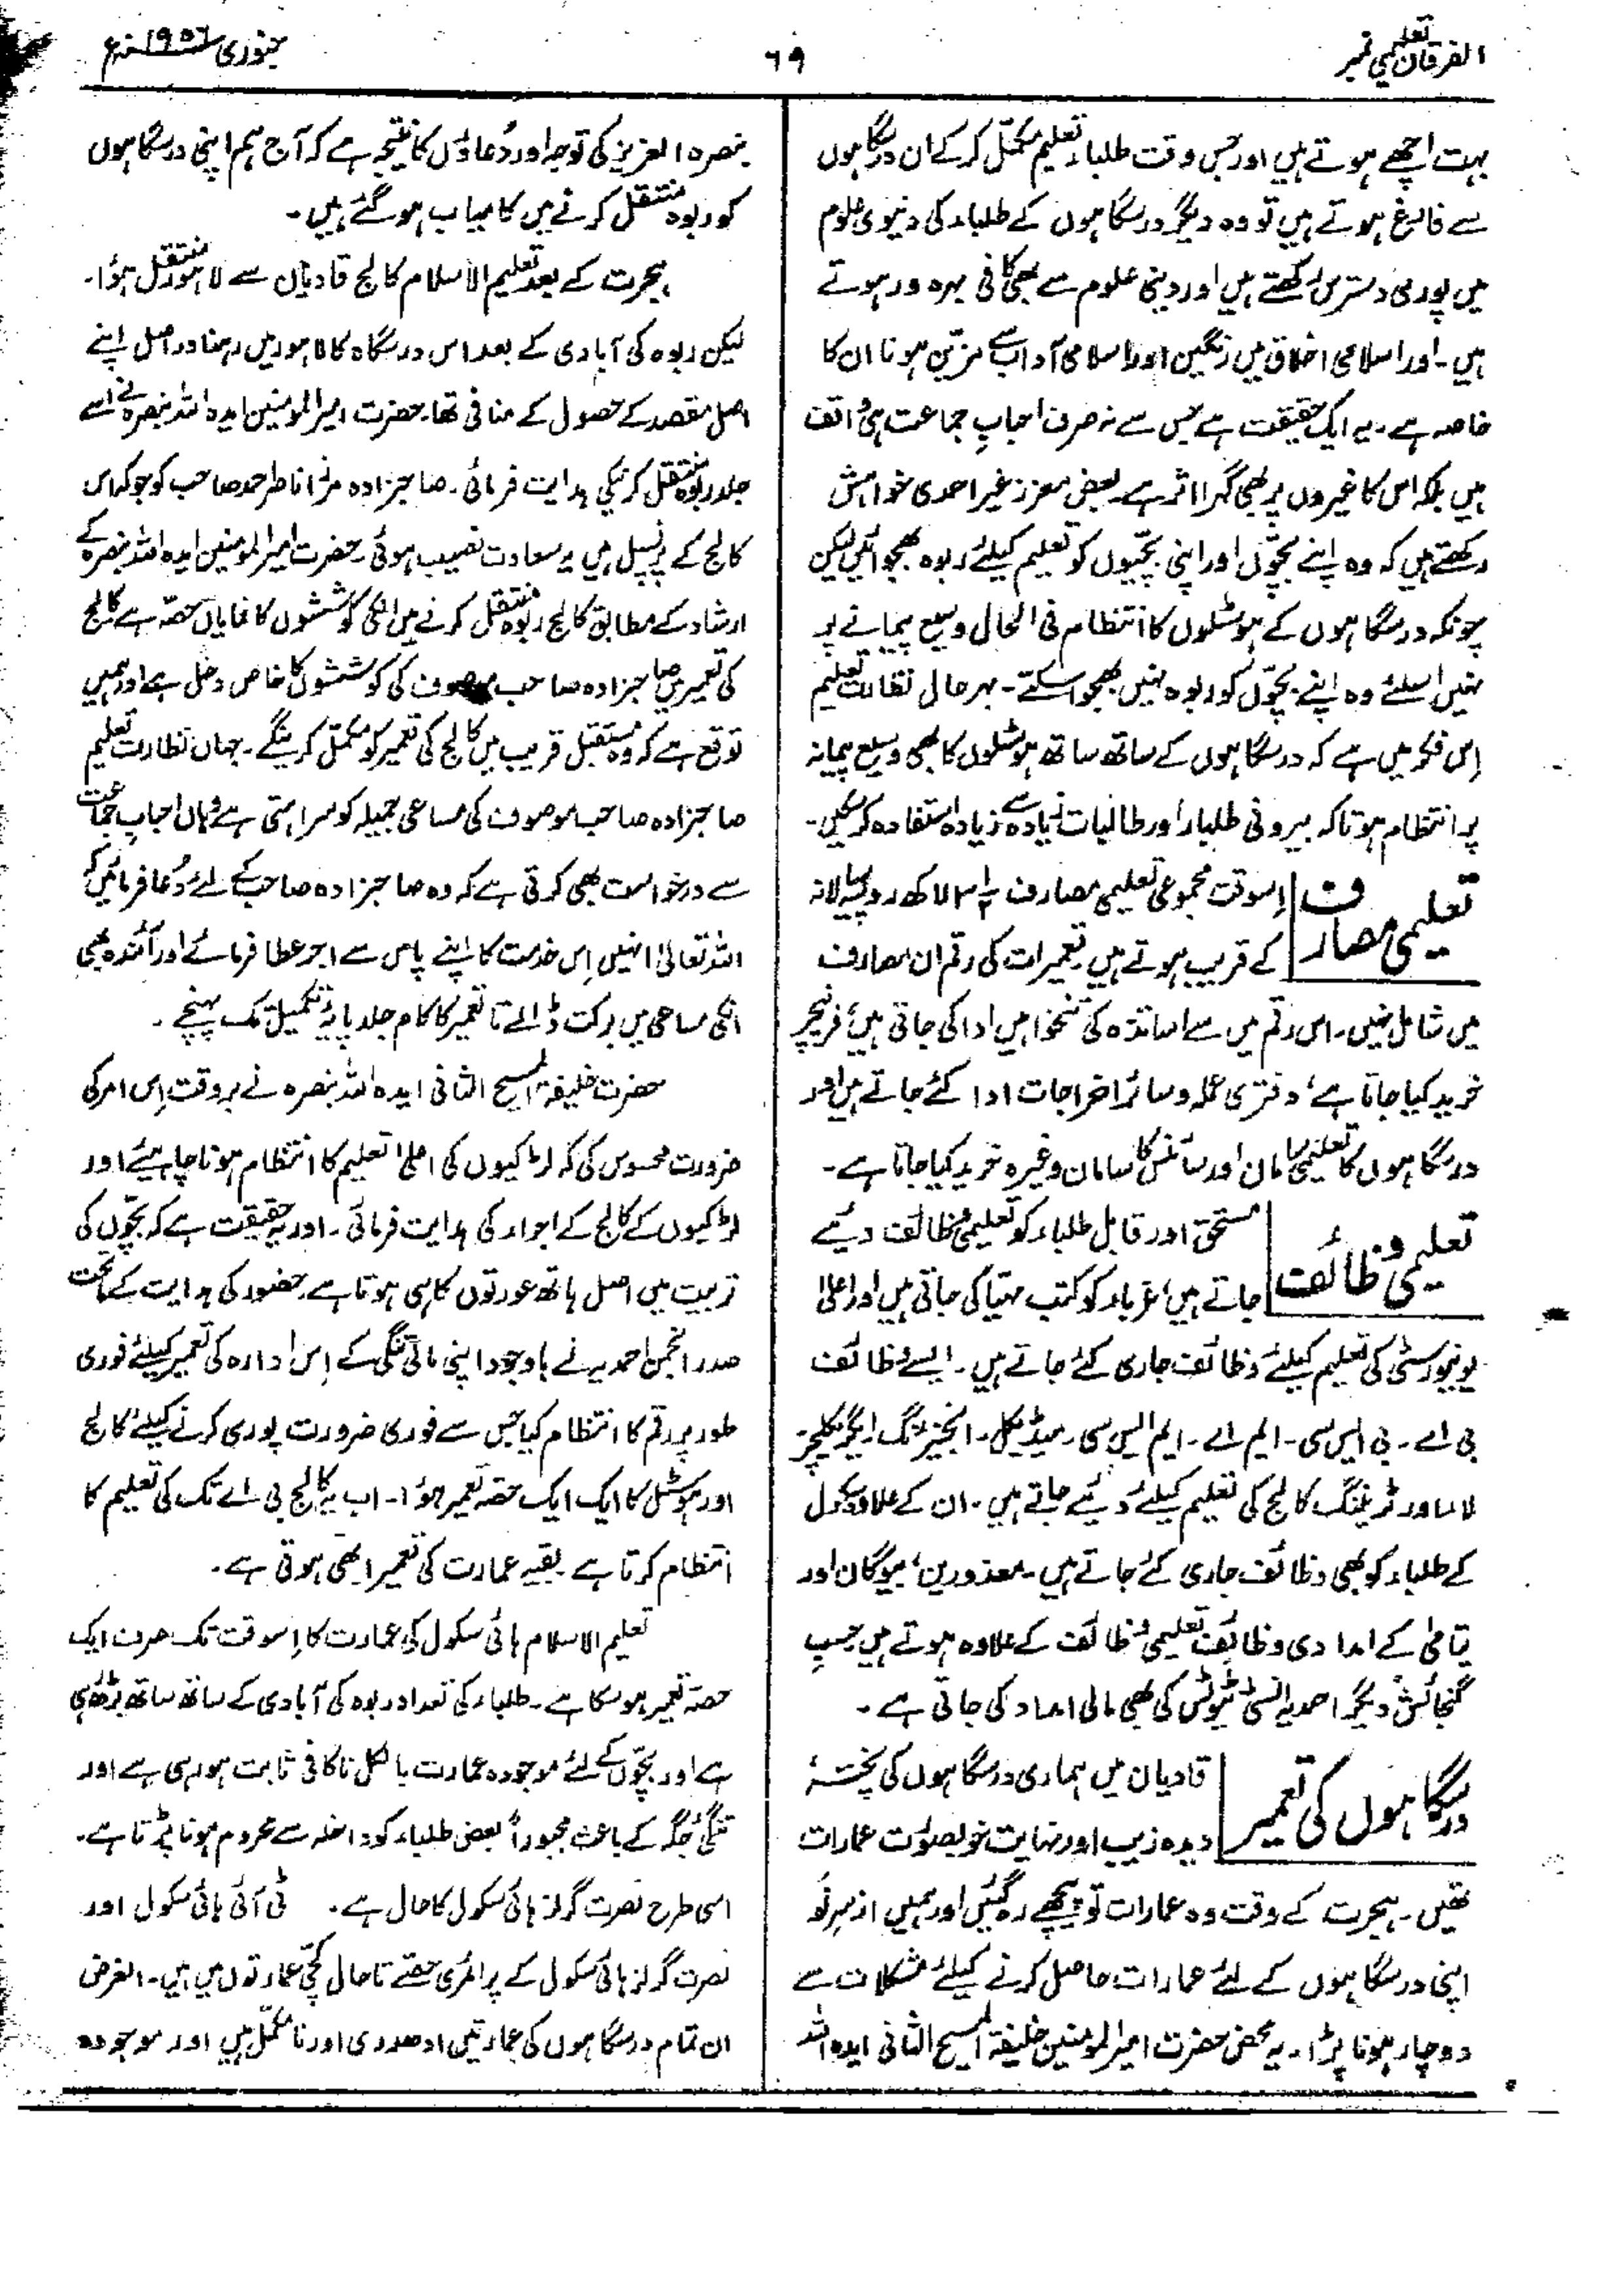 الفرقان تعلیمی نمبر
۶۹
جنوری ۱۹۵۶ء
بہت اچھے ہوتے ہیں اور جس وقت طلباء تعلیم مکمّل کر کے ان درسگاہوں
سے فارغ ہوتے ہیں تو وہ دیگر درسگاہوں کے طلباء کی دنیوی علوم
میں پوری دسترس رکھتے ہیں اور دینی علوم سے بھی کافی بہرہ ور ہوتے
ہیں۔ اور اسلامی اخلاق میں رنگین اور اسلامی آداب سے مزیّن ہونا ان کا
خاصہ ہے۔ یہ ایک حقیقت ہے جس سے نہ صرف احبابِ جماعت ہی واقف
ہیں بلکہ اس کا غیروں پر بھی گہرا اثر ہے۔ بعض معزز غیر احمدی خواہش
رکھتے ہیں کہ وہ اپنے بچّوں اور اپنی بچّیوں کو تعلیم کیلئے ربوہ بھجوائیں لیکن
چونکہ درسگاہوں کے ہوسٹلوں کا انتظام فی الحال وسیع پیمانے پر
نہیں اسلئے وہ اپنے بچّوں کو ربوہ نہیں بھجوا سکتے۔ بہرحال نظارت تعلیم
اِس فکر میں ہے کہ درسگاہوں کے ساتھ ساتھ ہوسٹلوں کا بھی وسیع پیمانہ
پر انتظام ہو تاکہ بیرونی طلباء اور طالبات زیادہ سے زیادہ استفادہ کر سکیں۔
تعلیمی مصارف
اِسوقت مجموعی تعلیمی مصارف ۳½ لاکھ روپیہ سالانہ
کے قریب ہوتے ہیں تعمیرات کی رقم ان مصارف
میں شامل نہیں۔ اس رقم میں سے اساتذہ کی تنخواہیں ادا کی جاتی ہیں، فرنیچر
خرید کیا جاتا ہے، دفتری عملہ و سائر اخراجات ادا کئے جاتے ہیں اور
درسگاہوں کا تعلیمی سامان اور سائنس کا سامان وغیرہ خرید کیا جاتا ہے۔
تعلیمی وظائف
مستحق اور قابل طلباء کو تعلیمی وظائف دئیے
جاتے ہیں، غرباء کو کتب مہیّا کی جاتی ہیں اور اعلیٰ
یونیورسٹی کی تعلیم کیلئے وظائف جاری کئے جاتے ہیں۔ ایسے وظائف
بی اے۔ بی ایس سی۔ ایم اے۔ ایم ایس سی۔ میڈیکل۔ انجنیئرنگ، ایگریکلچر
لاء اور ٹریننگ کالج کی تعلیم کیلئے دیئے جاتے ہیں۔ ان کے علاوہ سکول
کے طلباء کو بھی وظائف جاری کئے جاتے ہیں۔ معذورین، بیوگان اور
یتامیٰ کے امدادی وظائف تعلیمی وظائف کے علاوہ ہوتے ہیں حسبِ
گنجائش دیگر احمدیہ انسٹی ٹیوٹس کی بھی مالی امداد کی جاتی ہے۔
درسگاہوں کی تعمیر
قادیان میں ہماری درسگاہوں کی پختہ
دیدہ زیب اور نہایت خوبصورت عمارات
تھیں۔ ہجرت کے وقت وہ عمارات تو پیچھے رہ گئیں اور ہمیں از سرِ نَو
اپنی درسگاہوں کے لئے عمارات حاصل کرنے کیلئے مشکلات سے
دوچار ہونا پڑا۔ یہ محض حضرت امیر المومنین خلیفۃ المسیح الثانی ایدہ اللہ
بنصرہ العزیز کی توجہ اور دُعاؤں کا نتیجہ ہے کہ آج ہم اپنی درسگاہوں
کو ربوہ منتقل کرنے میں کامیاب ہو گئے ہیں۔
ہجرت کے بعد تعلیم الاسلام کالج قادیان سے لاہور منتقل ہؤا۔
لیکن ربوہ کی آبادی کے بعد اس درسگاہ کا لاہور میں رہنا دراصل اپنے
اصل مقصد کے حصول کے منافی تھا۔ حضرت امیر المومنین ایدہ اللہ بنصرہ نے اسے
جلد ربوہ منتقل کرنیکی ہدایت فرمائی۔ صاحبزادہ مرزا ناصر احمد صاحب کو جو کہ اس
کالج کے پرنسپل ہیں یہ سعادت نصیب ہوئی۔ حضرت امیر المومنین ایدہ اللہ بنصرہ کے
ارشاد کے مطابق کالج ربوہ منتقل کرنے میں انکی کوششوں کا نمایاں حصّہ ہے کالج
کی تعمیر میں صاحبزادہ صاحب موصوف کی کوششوں کا خاص دخل ہے اور ہمیں
توقع ہے کہ وہ مستقبل قریب میں کالج کی تعمیر کو مکمّل کرینگے۔ جہاں نظارت تعلیم
صاحبزادہ صاحب موصوف کی مساعی جمیلہ کو سراہتی ہے وہاں احبابِ جماعت
سے درخواست بھی کرتی ہے کہ وہ صاحبزادہ صاحب کے لئے دُعا فرمائیں کہ
اللہ تعالیٰ انہیں اِس خدمت کا اپنے پاس سے اجر عطا فرمائے اور آئندہ بھی
انکی مساعی میں برکت ڈالے تا تعمیر کا کام جلد پایۂ تکمیل تک پہنچے۔
حضرت خلیفۃ المسیح الثانی ایدہ اللہ بنصرہ نے بروقت اِس امر کی
ضرورت محسوس کی کہ لڑکیوں کی اعلیٰ تعلیم کا انتظام ہونا چاہیئے اور
لڑکیوں کے کالج کے اجراء کی ہدایت فرمائی۔ اور یہ حقیقت ہے کہ بچّوں کی
تربیت میں اصل ہاتھ عورتوں کا ہی ہوتا ہے۔ حضور کی ہدایت کے ماتحت
صدر انجمن احمدیہ نے باوجود اپنی مالی تنگی کے اِس ادارہ کی تعمیر کیلئے فوری
طور پر رقم کا انتظام کیا جس سے فوری ضرورت پوری کرنے کیلئے کالج
اور ہوسٹل کا ایک ایک حصّہ تعمیر ہؤا۔ اب یہ کالج بی اے تک کی تعلیم کا
انتظام کرتا ہے۔ بقیہ عمارت کی تعمیر ابھی ہوتی ہے۔
تعلیم الاسلام ہائی سکول کی عمارت کا اِسوقت تک صرف ایک
حصّہ تعمیر ہو سکا ہے۔ طلباء کی تعداد ربوہ کی آبادی کے ساتھ ساتھ بڑھ رہی
ہے اور بچّوں کے لئے موجودہ عمارت بالکل ناکافی ثابت ہو رہی ہے اور
تنگئ جگہ کے باعث مجبوراً بعض طلباء کو داخلہ سے محروم ہونا پڑتا ہے۔
اسی طرح نصرت گرلز ہائی سکول کا حال ہے۔ ٹی آئی ہائی سکول اور
نصرت گرلز ہائی سکول کے پرائمری حصّے تاحال کچّی عمارتوں میں ہیں۔ الغرض
ان تمام درسگاہوں کی عمارتیں ادھوری اور نامکمّل ہیں اور موجودہ